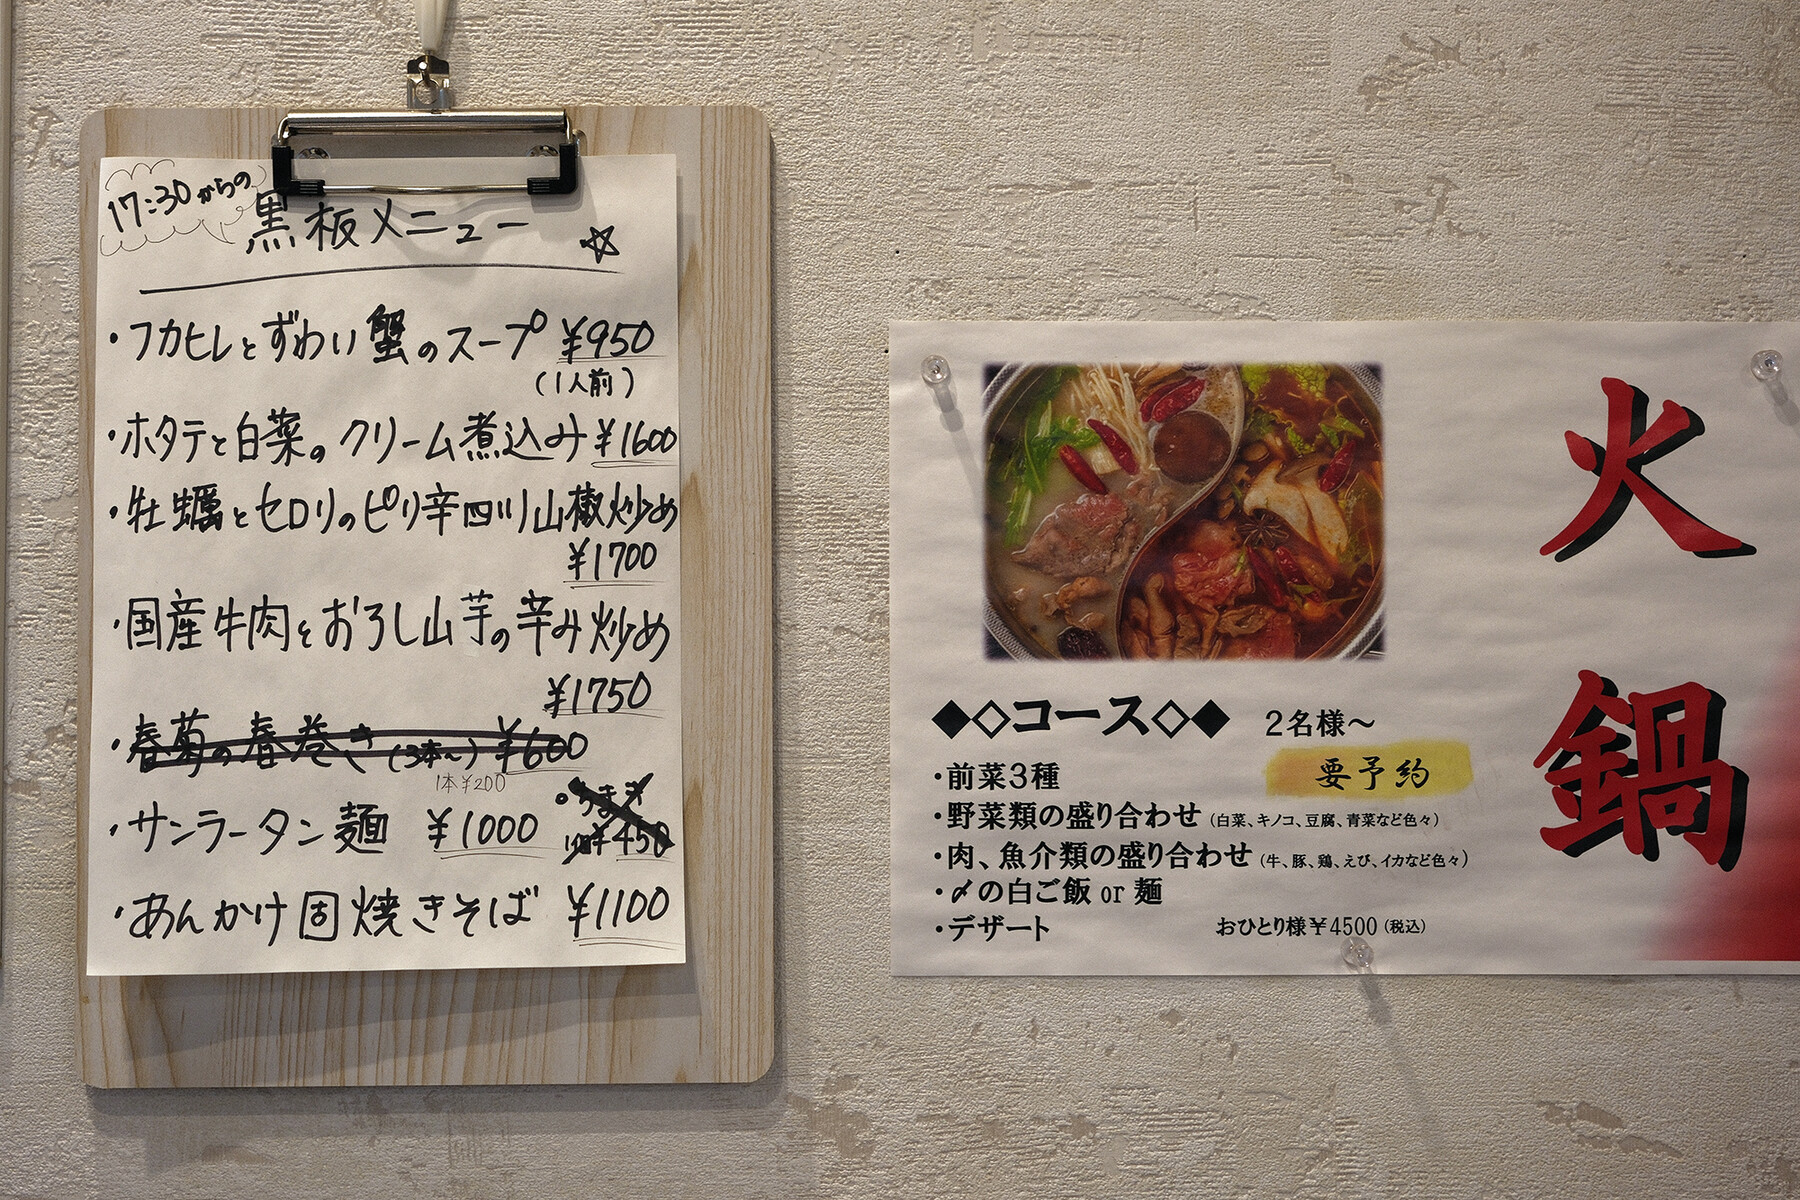 17:30からの
黒板メニュー ☆
・フカヒレとずわい蟹のスープ ¥950
(1人前)
・ホタテと白菜のクリーム煮込み ¥1600
・牡蠣とセロリのピリ辛四川山椒炒め
¥1700
・国産牛肉とおろし山芋の辛み炒め
¥1750
・春菊の春巻き(3本〜) ¥600
1本¥200
・サンラータン麺 ¥1000
¥450
・あんかけ固焼きそば ¥1100
火鍋
◆◇コース◇◆ 2名様〜
要予約
・前菜3種
・野菜類の盛り合わせ(白菜、キノコ、豆腐、青菜など色々)
・肉、魚介類の盛り合わせ(牛、豚、鶏、えび、イカなど色々)
・〆の白ご飯 or 麺
・デザート おひとり様¥4500(税込)